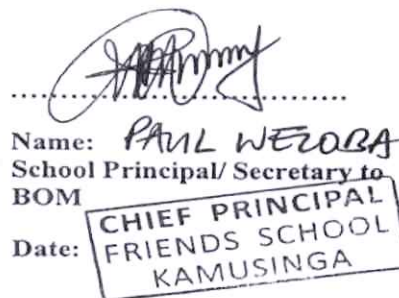 Name: PAUL WEZOBA
School Principal/ Secretary to
BOM
CHIEF PRINCIPAL
Date: FRIENDS SCHOOL
KAMUSINGA